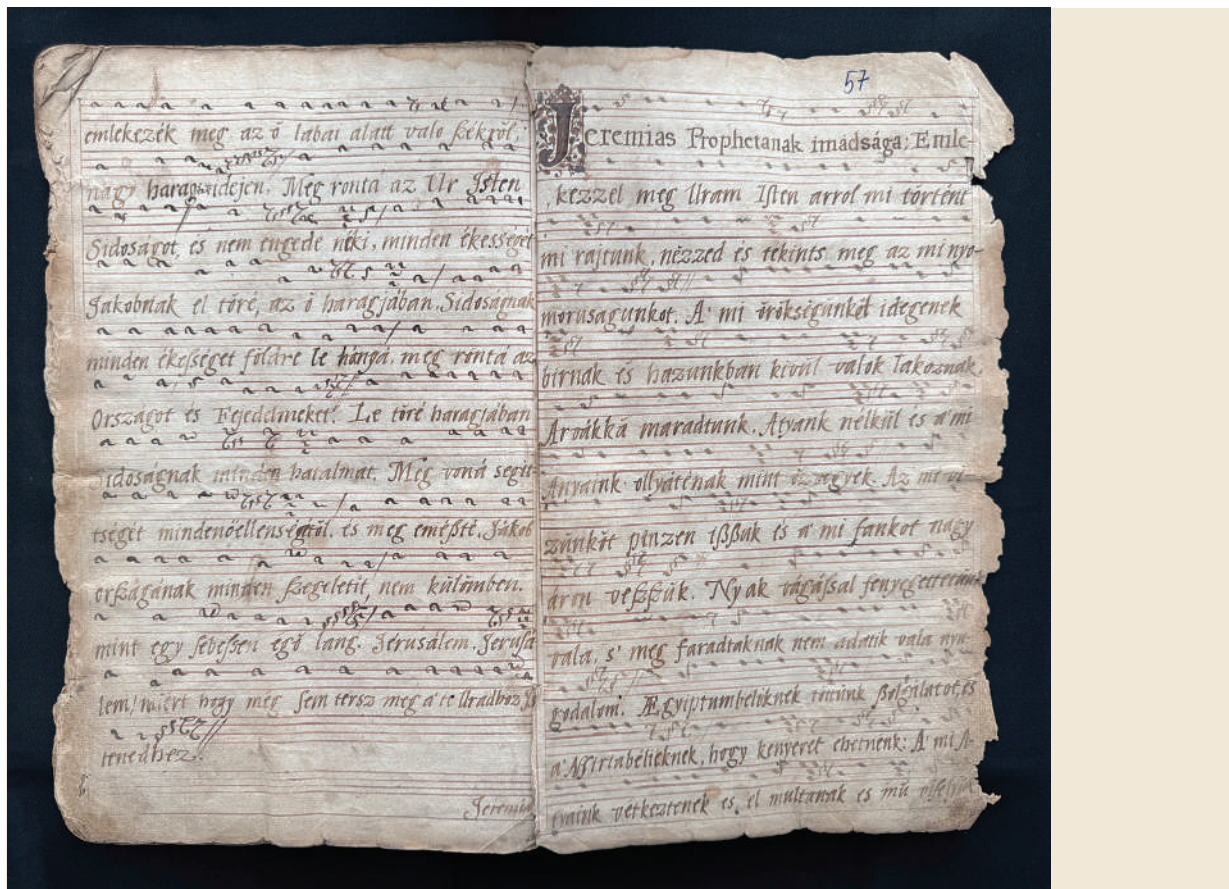 emlekezék meg az ő labai alatt valo ßékről,
nagy haragja idejen. Meg rontá az Ur Isten
Sidoságot, és nem engede néki, minden ékességet
Jakobnak el töré, az ő haragjában. Sidoságnak
minden ékeſséget földre le hánỹá, meg rontá az
Országot és Fejedelmeket! Le töré haragjában
Sidoságnak minden hatalmát. Meg voná segit-
tségét minden ellenségtöl. és meg emeßté. Jákob
orßágának minden ßegeletit, nem külömben.
mint egy sebeſsen égő lang. Jérusálem. Jerusá
lem! miért hogy még sem tersz meg a' te Uradhoz Is
tenedhez!
Jeremiá
57
Jeremias Prophetanak imádsága; Emle-
kezzél meg Uram Iſten arrol mi történt
mi rajtunk, nézzed és tekints meg az mi nyo-
moruságunkot. A' mi örökségünköt idegenek
birnak és hazunkban kivül valok lakoznak.
Arvákká maradtunk. Atyánk nélkül és a' mi
Anyaink ollyaténak mint özvegyek. Az mi vi-
zünköt pénzen ißßuk és a' mi fankot nagy
áron veßßük. Nyak vágáſsal fenyegettetünk
vala, s' meg faradtaknak nem adatik vala nyu-
godalom. Ægyiptumbélieknek töttünk ßolgálatot, és
a' Aſsiriabélieknek, hogy kenyeret ehetnénk: A' mi A-
tyaink vetkeztenek és el multanak és mü